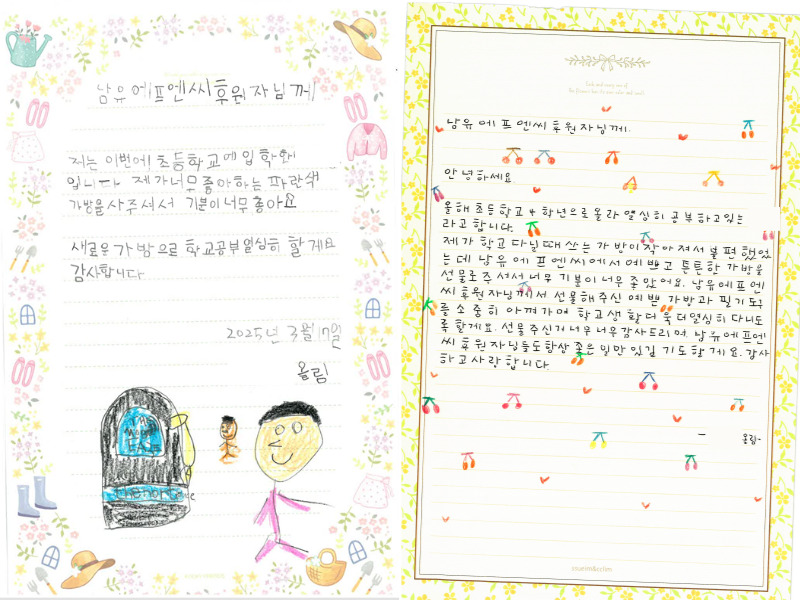 남유에프엔씨후원자님께
저는 이번에 초등학교에 입학화
입니다. 제가 너무 좋아하는 파란색
가방을 사주셔서 기분이 너무 좋아요
새로운 가방으로 학교공부 열심히 할게요
감사합니다
2025년 3월 17일
올림
THE NORTH FACE
남유 에프엔씨 후원자님께.
안녕하세요.
올해 초등학교 4 학년으로 올라 열심히 공부하고있는
라고 합니다.
제가 학교 다닐때 쓰는 가방이 작아져서 불편했었
는데 남유 에프엔씨에서 예쁘고 튼튼한 가방을
선물로 주셔서 너무 기분이 너무 좋았어요. 남유에프엔
씨 후원자님께서 선물해주신 예쁜 가방과 필기도구
를 소중히 아껴가며 학교생활 더욱 더열심히 다니도
록 할게요. 선물주신거 너무 너무감사드리며, 남유에프엔
씨 후원자님들도항상 좋은 일만 있길 기도할게요. 감사
하고 사랑합니다.
- 올림-